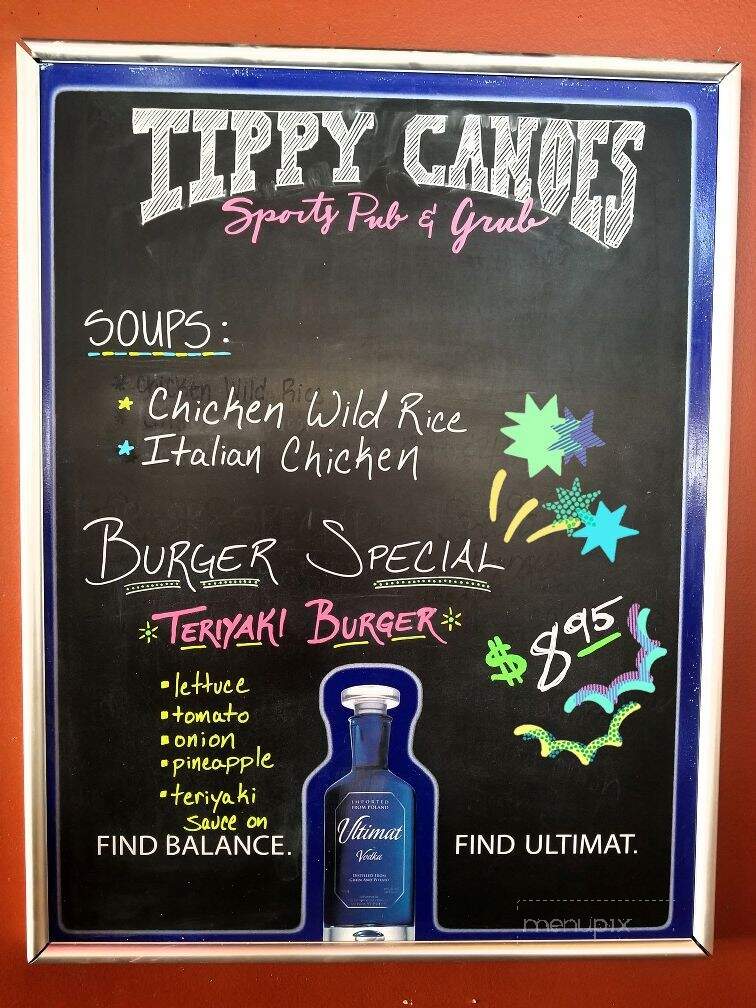 TIPPY CANOES
Sports Pub & Grub
SOUPS:
* Chicken Wild Rice
* Italian Chicken
BURGER SPECIAL
* TERIYAKI BURGER *
$8.95
• lettuce
• tomato
• onion
• pineapple
• teriyaki
sauce on
FIND BALANCE.
IMPORTED
FROM POLAND
Ultimat
Vodka
DISTILLED FROM
GRAIN AND POTATO
FIND ULTIMAT.
menupix